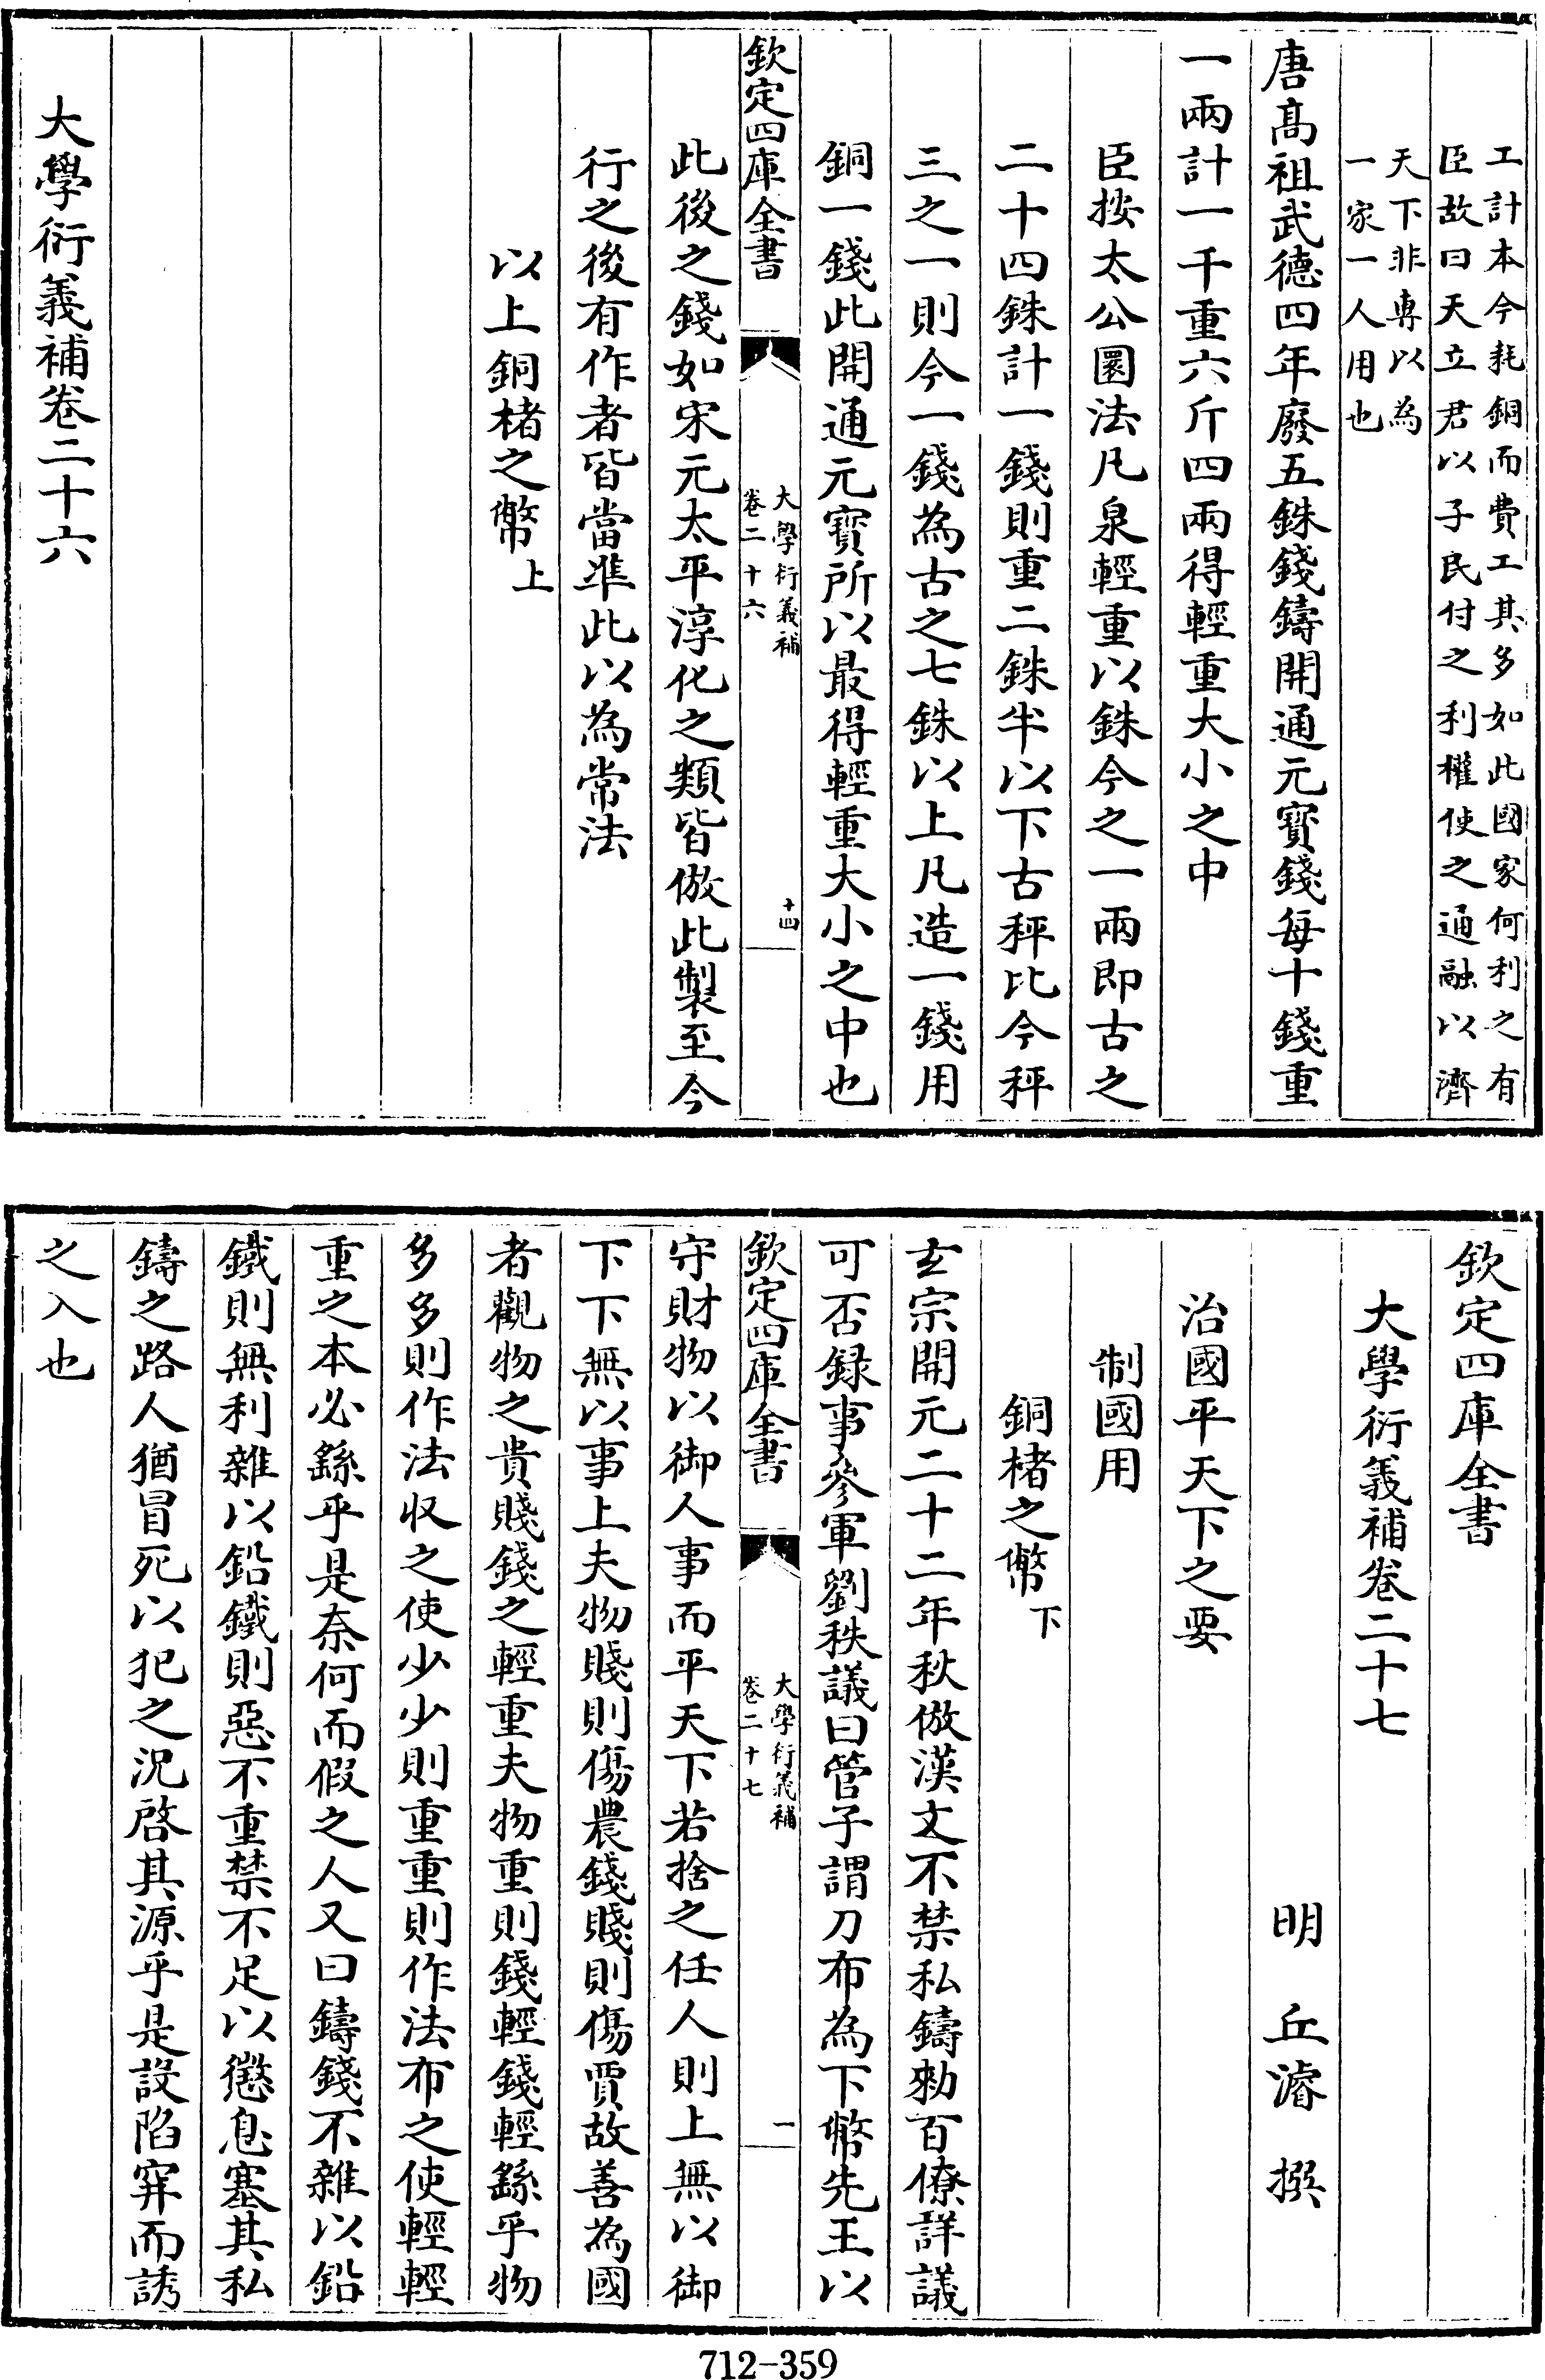 工計本今耗銅而費工其多如此國家何利之有
臣故曰天立君以子民付之利權使之通融以濟
天下非專以為
一家一人用也
唐髙祖武徳四年廢五銖錢鑄開通元寳錢每十錢重
一兩計一千重六斤四兩得輕重大小之中
臣按太公圜法凡泉輕重以銖今之一兩即古之
二十四銖計一錢則重二銖半以下古秤比今秤
三之一則今一錢為古之七銖以上凡造一錢用
銅一錢此開通元寳所以最得輕重大小之中也
欽定四庫全書
大學衍義補
卷二十六
十四
此後之錢如宋元太平淳化之類皆倣此製至今
行之後有作者皆當凖此以為常法
以上銅楮之幣上
大學衍義補卷二十六
欽定四庫全書
大學衍義補卷二十七
明 丘濬 撰
治國平天下之要
制國用
銅楮之幣下
玄宗開元二十二年秋倣漢文不禁私鑄勅百僚詳議
可否録事參軍劉秩議曰管子謂刀布為下幣先王以
欽定四庫全書
大學衍義補
卷二十七
一
守財物以御人事而平天下若捨之任人則上無以御
下下無以事上夫物賤則傷農錢賤則傷賈故善為國
者觀物之貴賤錢之輕重夫物重則錢輕錢輕繇乎物
多多則作法收之使少少則重重則作法布之使輕輕
重之本必繇乎是奈何而假之人又曰鑄錢不雜以鉛
鐵則無利雜以鉛鐵則惡不重禁不足以懲息塞其私
鑄之路人猶冒死以犯之況啓其源乎是設陷穽而誘
之入也
712-359